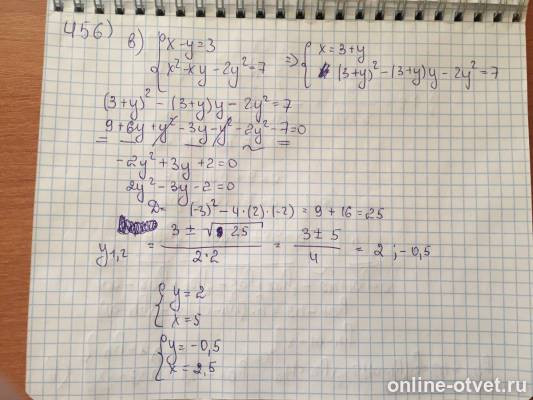 456)
в) { x-y=3 => { x=3+y
{ x²-xy-2y²=7 { (3+y)²-(3+y)y-2y²=7
(3+y)²-(3+y)y-2y²=7
9+6y+y²-3y-y²-2y²-7=0
-2y²+3y+2=0
2y²-3y-2=0
D= (-3)²-4·(2)·(-2)=9+16=25
y₁,₂ = (3±√25)/(2·2) = (3±5)/4 = 2;-0,5
{ y=2
{ x=5
{ y=-0,5
{ x=2,5
online-otvet.ru